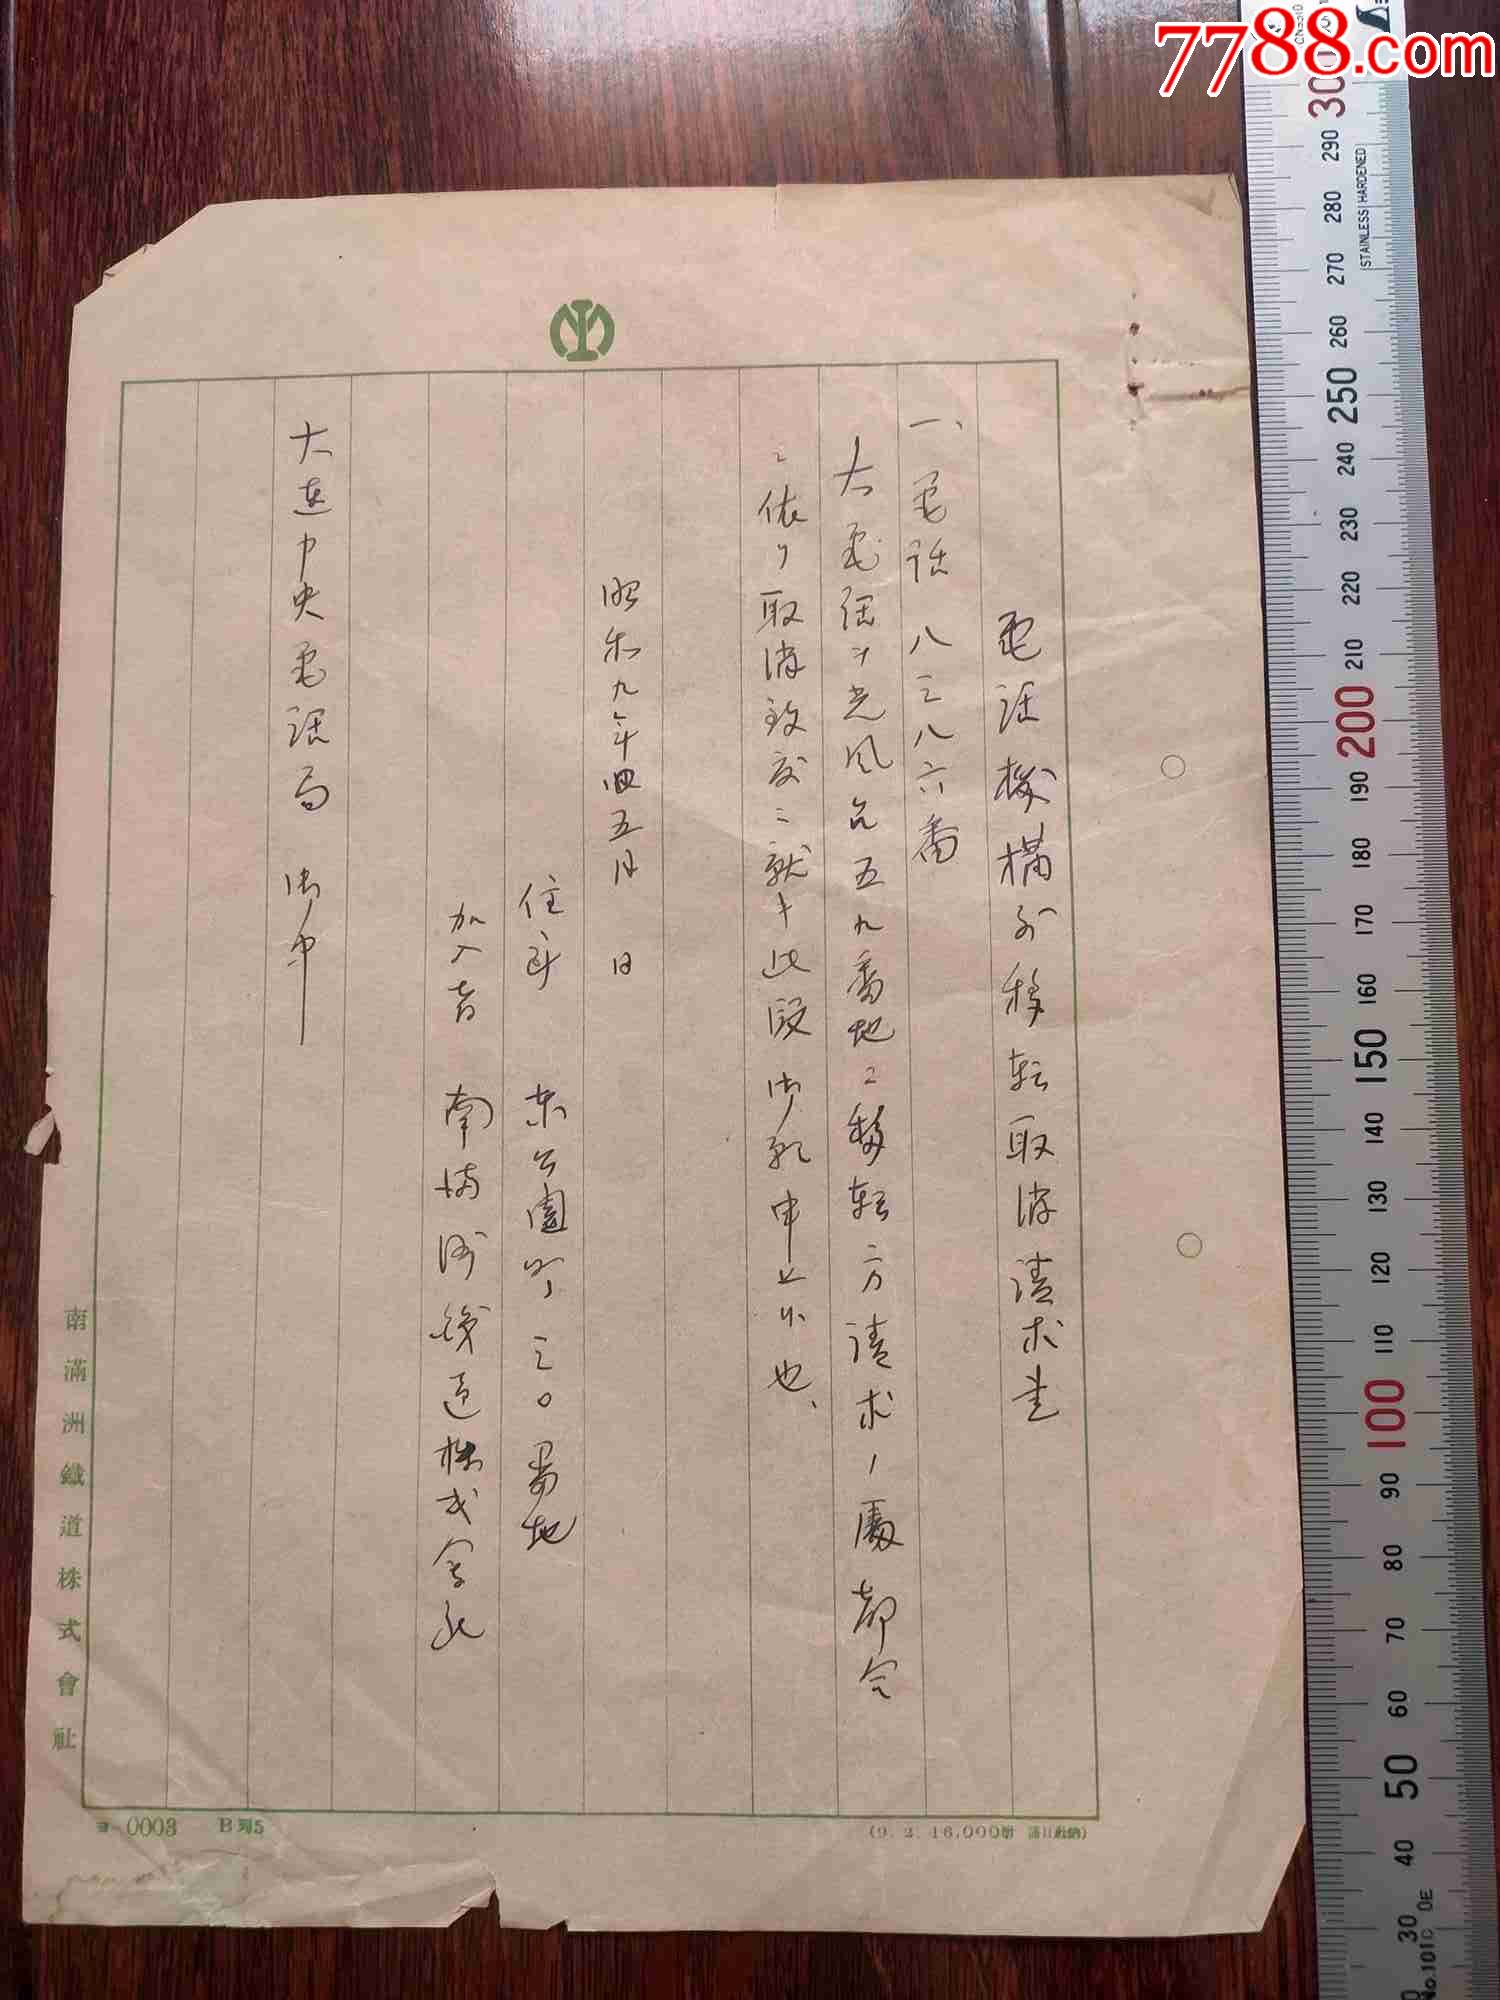 7788.com
電話機構外移転取消請求書
一、電話 八三八六番
大電話ヲ光風台五九番地ニ移転方請求ノ處都合
ニ依リ取消致度ニ就キ此段御願申上候也、
昭和九年四五月 日
住所 東公園町三〇番地
加入者 南満洲鉄道株式会社
大連中央電話局 御中
南滿洲鐵道株式會社
ヨ-0003 B列5
(9. 2. 16,000冊
STAINLESS HARDENED
300
290
280
270
260
250
240
230
220
210
200
190
180
170
160
150
140
130
120
110
100
90
80
70
60
50
40
30